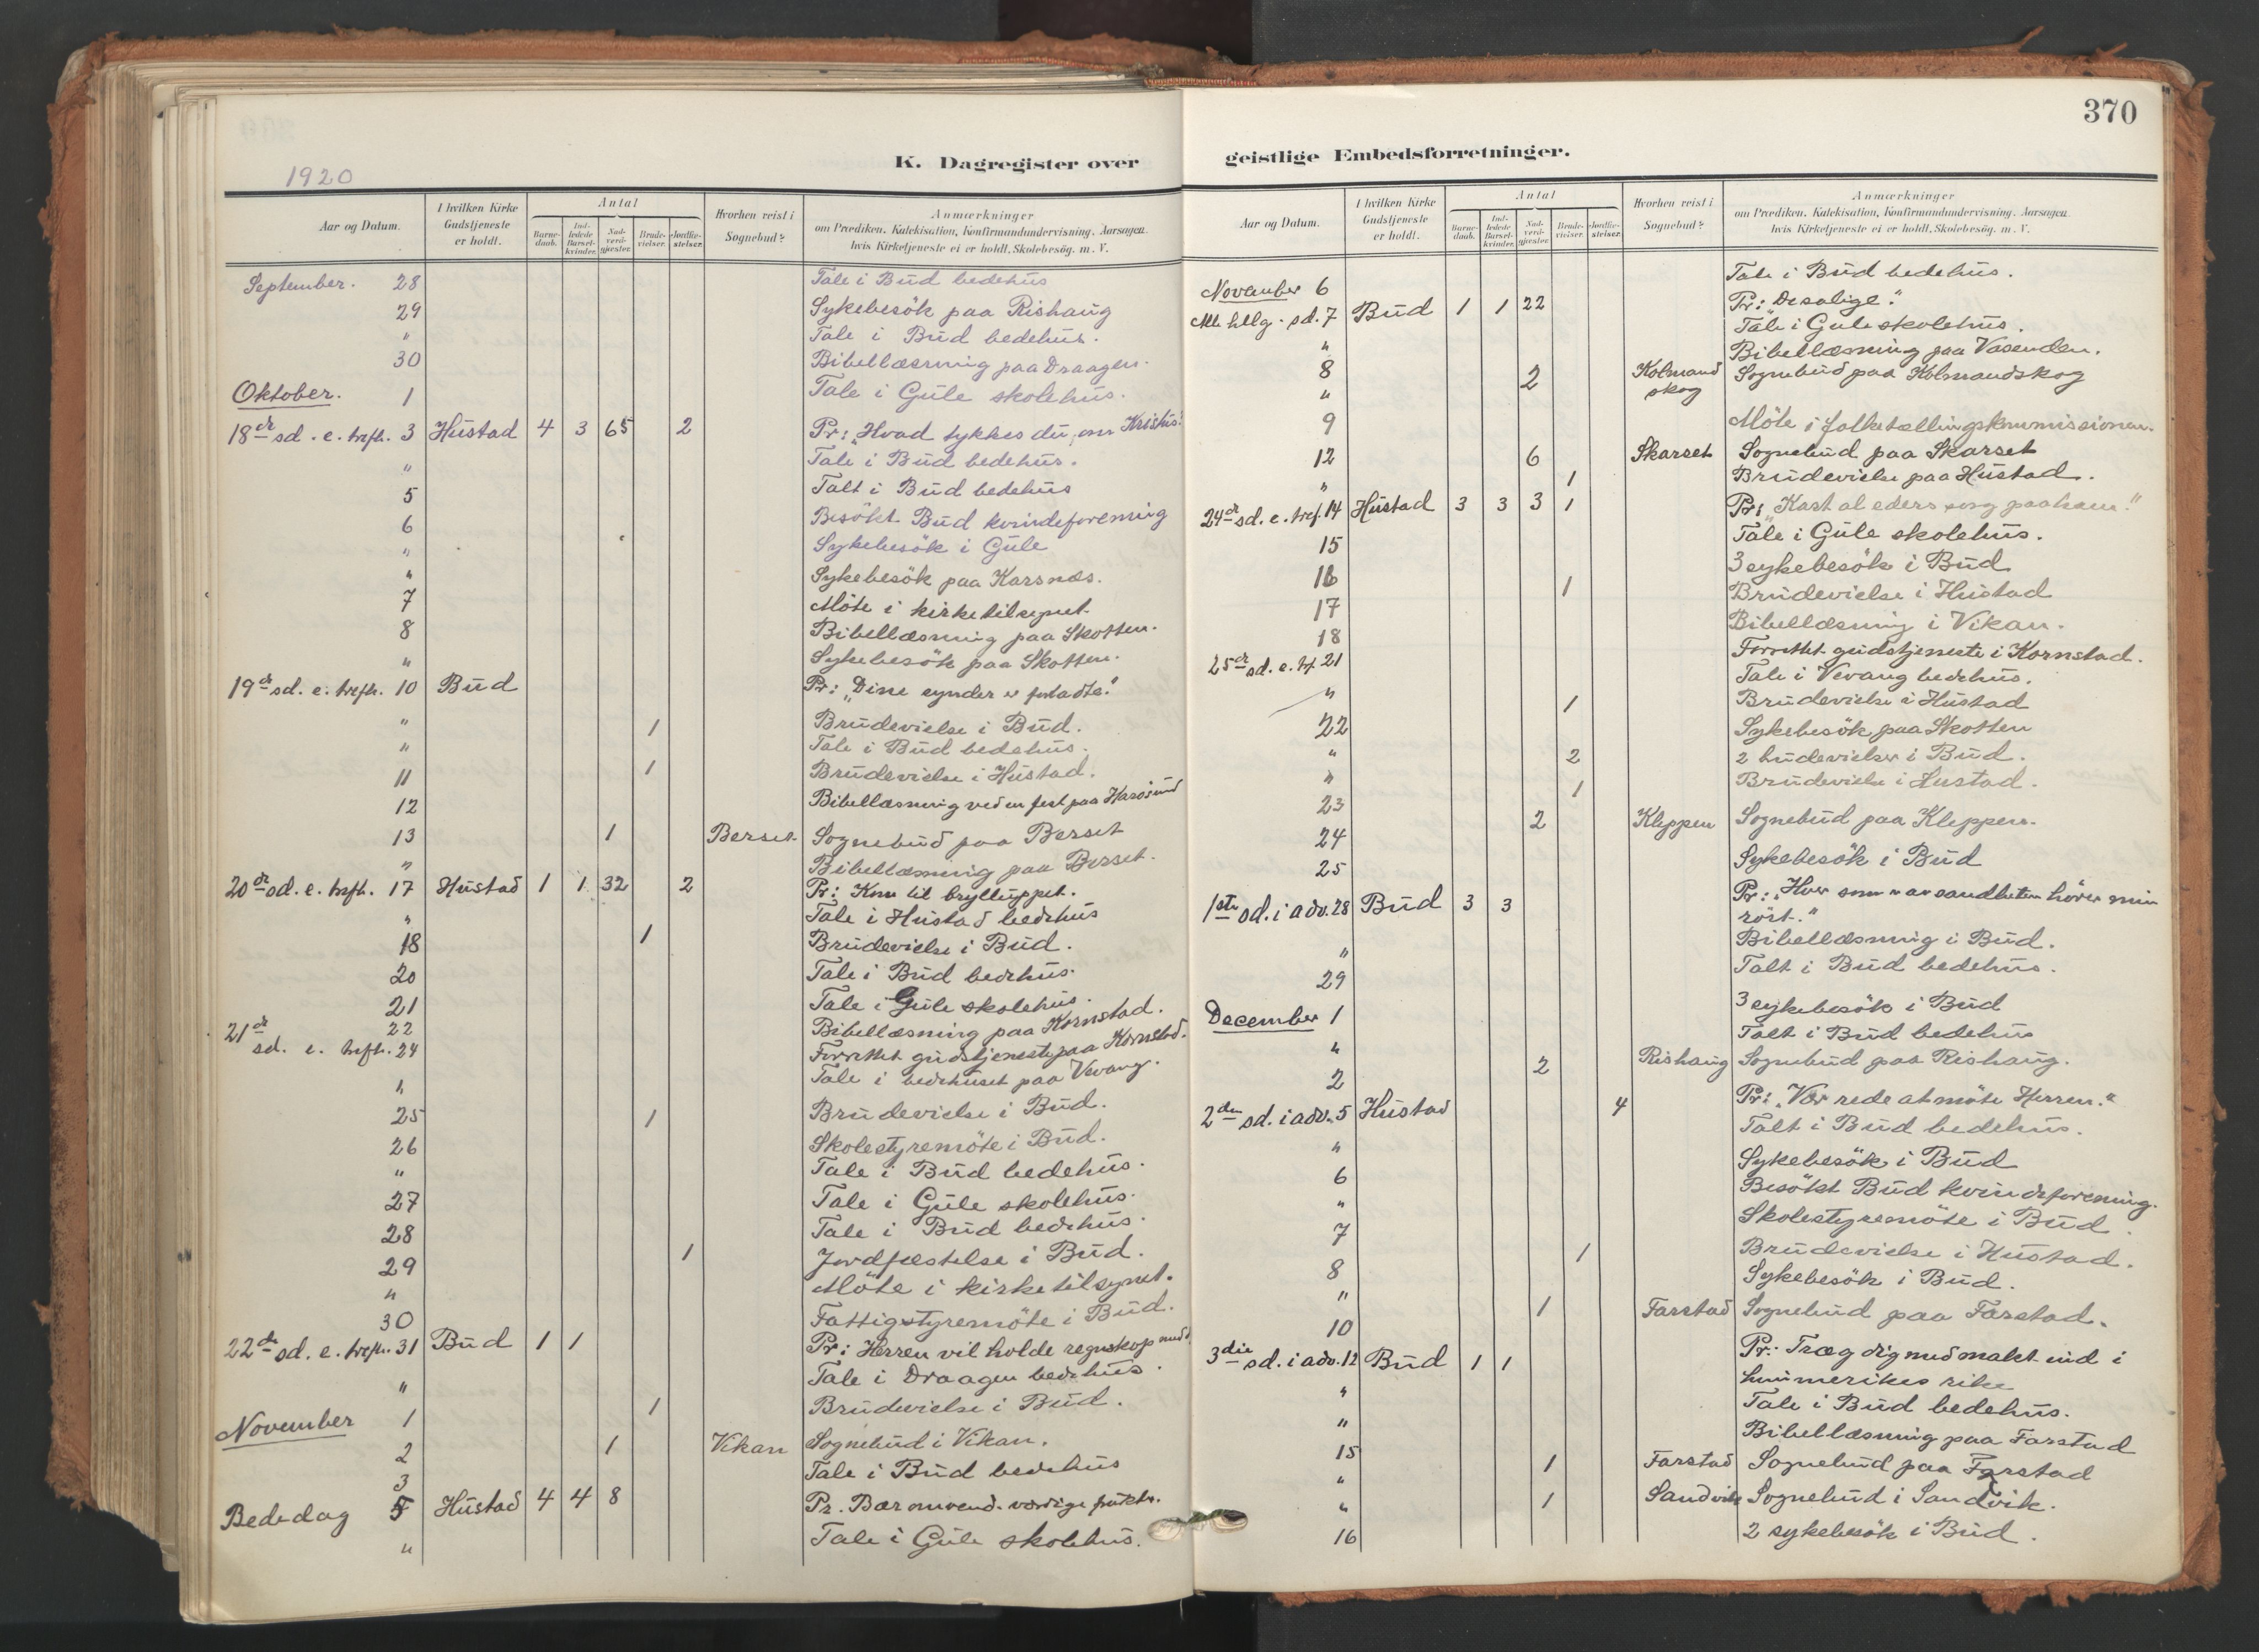 K. Dagregister over
1920
Aar og Datum. I hvilken Kirke Gudstjeneste er holdt. Antal Barnedaab. Indledede Barselkvinder. Nadverdgjester. Brudevielser. Jordfæstelser. Hvorhen reist i Sognebud? Anmærkninger om Prædiken, Katekisation, Konfirmandundervisning, Aarsagen, hvis Kirketjeneste ei er holdt, Skolebesøg, m. V.
September. 28 Tale i Bud bedehus
29 Sykebesök paa Rishaug
" Tale i Bud bedehus.
30 Bibellæsning paa Draagen.
Oktober. 1 Tale i Gule skolehus.
18de sd. e. trefh. 3 Hustad 4 3 65 2 Pr: "Hvad tykkes du om Kristus?
" Tale i Bud bedehus.
5 Talt i Bud bedehus
6 Besökt Bud kvindeforening
" Sykebesök i Gule
" Sykebesök paa Karsnæs.
7 Möte i kirketilsynet.
8 Bibellæsning paa Skotten.
" Sykebesök paa Skotten.
19de sd. e. trefh. 10 Bud Pr: "Dine synder er forladte."
" 1 Brudevielse i Bud.
" Tale i Bud bedehus.
11 1 Brudevielse i Hustad.
12 Bibellæsning ved en fest paa Harösund
13 1 Berset. Sognebud paa Berset
" Bibellæsning paa Berset.
20de sd. e. trefh. 17 Hustad 1 1 32 2 Pr: Kom til brylluppet.
" Tale i Hustad bedehus
18 1 Brudevielse i Bud.
20 Tale i Bud bedehus.
21 Tale i Gule skolehus.
22 Bibellæsning paa Kornstad.
21de sd. e. trefh. 24 Forrettet gudstjeneste paa Kornstad.
" Tale i bedehuset paa Vevang.
25 1 Brudevielse i Bud.
26 Skolestyremöte i Bud.
" Tale i Bud bedehus.
27 Tale i Gule skolehus.
28 Tale i Bud bedehus.
29 1 Jordfæstelse i Bud.
" Möte i kirketilsynet.
30 Fattigstyremöte i Bud.
22de sd. e. trefh. 31 Bud 1 1 Pr: Herren vil holde regnskap med
" Tale i Draagen bedehus.
November 1 1 Brudevielse i Bud.
2 1 Vikan Sognebud i Vikan.
3 Tale i Bud bedehus
Bededag 5 Hustad 4 4 8 Pr. Bær omvend. værdige frukter.
" Tale i Gule skolehus.
370
geistlige Embedsforretninger.
Aar og Datum. I hvilken Kirke Gudstjeneste er holdt. Antal Barnedaab. Indledede Barselkvinder. Nadverdgjester. Brudevielser. Jordfæstelser. Hvorhen reist i Sognebud? Anmærkninger om Prædiken, Katekisation, Konfirmandundervisning, Aarsagen, hvis Kirketjeneste ei er holdt, Skolebesøg, m. V.
November 6 Tale i Bud bedehus.
Alle hellg. sd. 7 Bud 1 1 22 Pr: "De salige."
" Tale i Gule skolehus.
8 Bibellæsning paa Vasenden.
" 2 Kolmandskog Sognebud paa Kolmandskog
9 Möte i folketællingskommissionen.
12 6 Skarset Sognebud paa Skarset
" 1 Brudevielse paa Hustad.
24de sd. e. tref. 14 Hustad 3 3 3 1 Pr: "Kast al eders sorg paa ham."
15 Tale i Gule skolehus.
16 3 sykebesök i Bud
17 1 Brudevielse i Hustad
18 Bibellæsning i Vikan.
25de sd. e. tref. 21 Forrettet gudstjeneste i Kornstad.
" Tale i Vevang bedehus.
22 1 Brudevielse i Hustad
" Sykebesök paa Skotten
" 2 2 brudevielser i Bud.
23 1 Brudevielse i Hustad.
24 2 Kleppen Sognebud paa Kleppen.
25 Sykebesök i Bud
1ste sd. i adv. 28 Bud 3 3 Pr: "Hver som er av sandheten hörer min
röst."
" Bibellæsning i Bud.
29 Talt i Bud bedehus.
December 1 3 sykebesök i Bud
" Talt i Bud bedehus
2 2 Rishaug Sognebud paa Rishaug.
2den sd. i adv. 5 Hustad 4 Pr: "Vær rede at möte Herren."
" Talt i Bud bedehus.
6 Sykebesök i Bud
" Besökt Bud kvindeforening.
7 Skolestyremöte i Bud.
8 1 Brudevielse i Hustad.
" Sykebesök i Bud.
10 1 Farstad Sognebud paa Farstad.
3die sd. i adv. 12 Bud 1 1 Pr: Træng dig med makt ind i
himmerikes rike
" Tale i Bud bedehus.
" Bibellæsning paa Farstad
15 1 Farstad Sognebud paa Farstad
" 1 Sandvik Sognebud i Sandvik.
16 2 sykebesök i Bud.